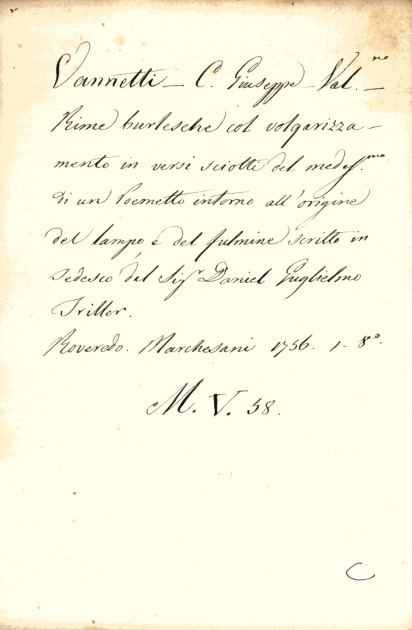 Vannetti – C. Giuseppe – Val.no –
Rime burlesche col volgarizza–
mento in versi sciolti del medes.mo
di un Poemetto intorno all'origine
del lampo, e del fulmine scritto in
tedesco dal Sigr Daniel Guglielmo
Triller.
Roveredo. Marchesani 1756. 1– 8°.
M. V. 58.
C